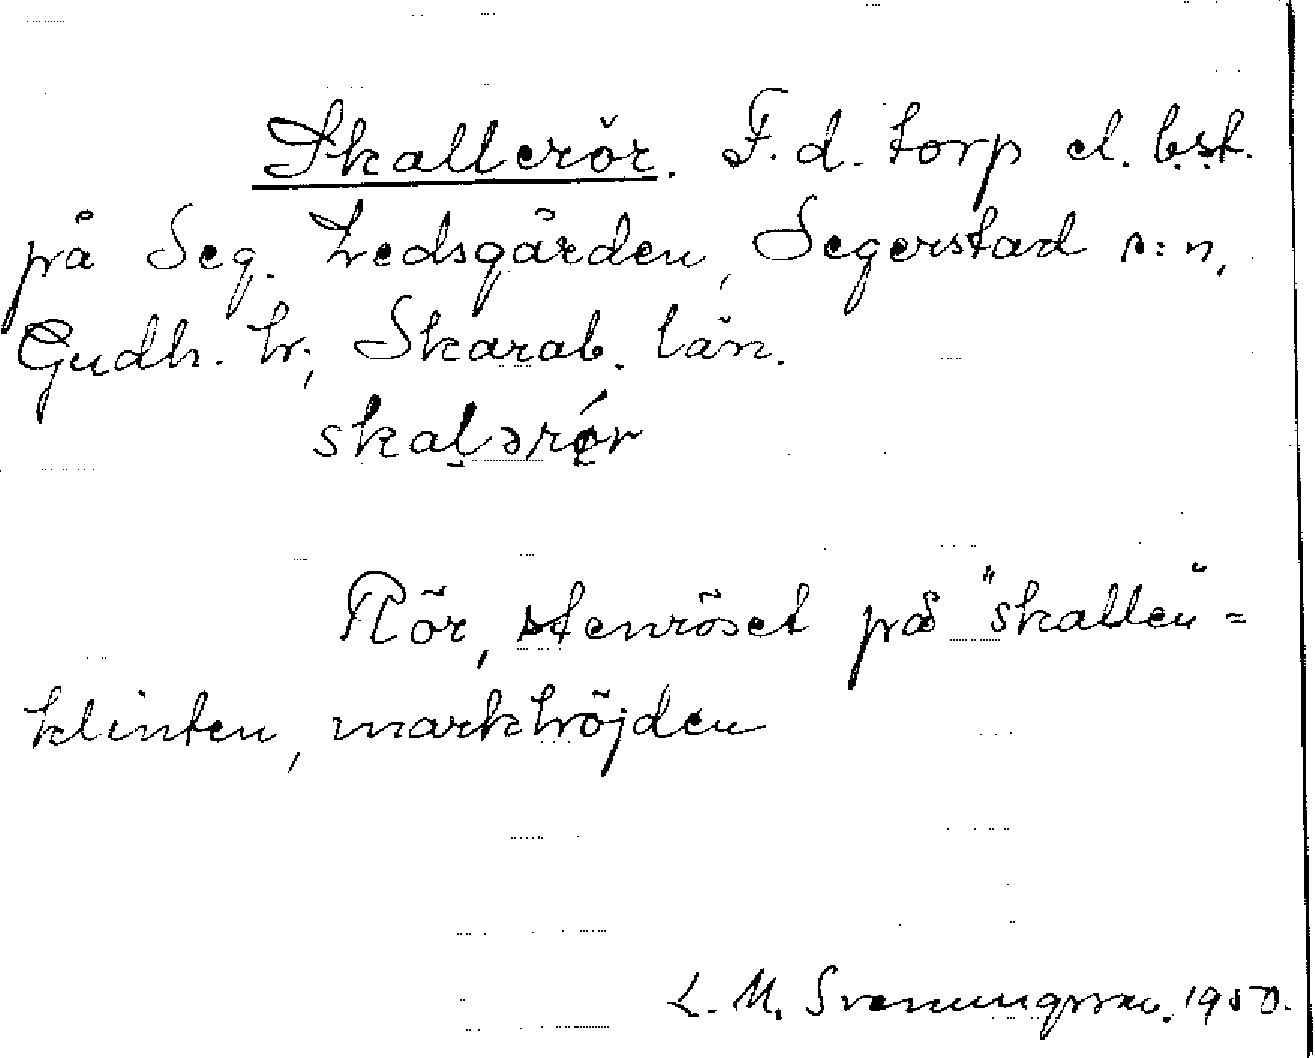 Skallerör. F.d. torp el. bst.
på Seg. Ledsgården, Segerstad s:n,
Gudh. hr, Skarab. län.
skaḷərǿr
Rör, stenröset på "skallen" =
klinten, markhöjden
L. M. Svenungsson. 1950.